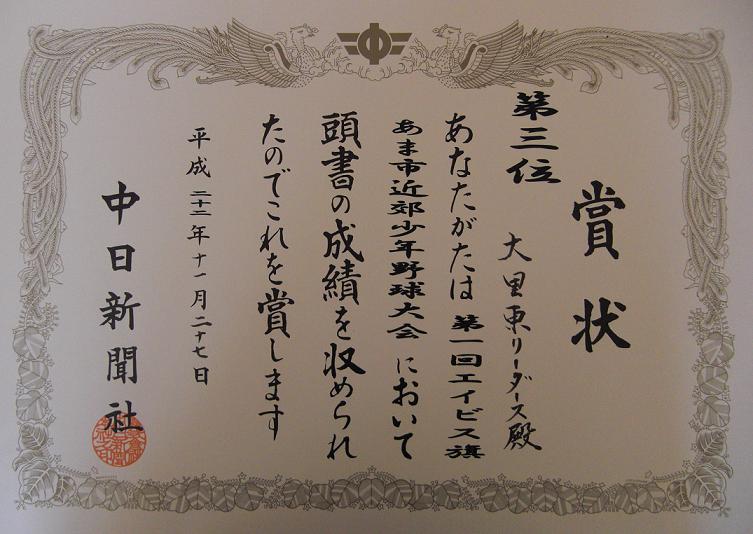 賞状
第三位
大里東リーダース殿
あなたがたは第一回エイビス旗
あま市近郊少年野球大会において
頭書の成績を収められ
たのでこれを賞します
平成二十二年十一月二十七日
中日新聞社
中